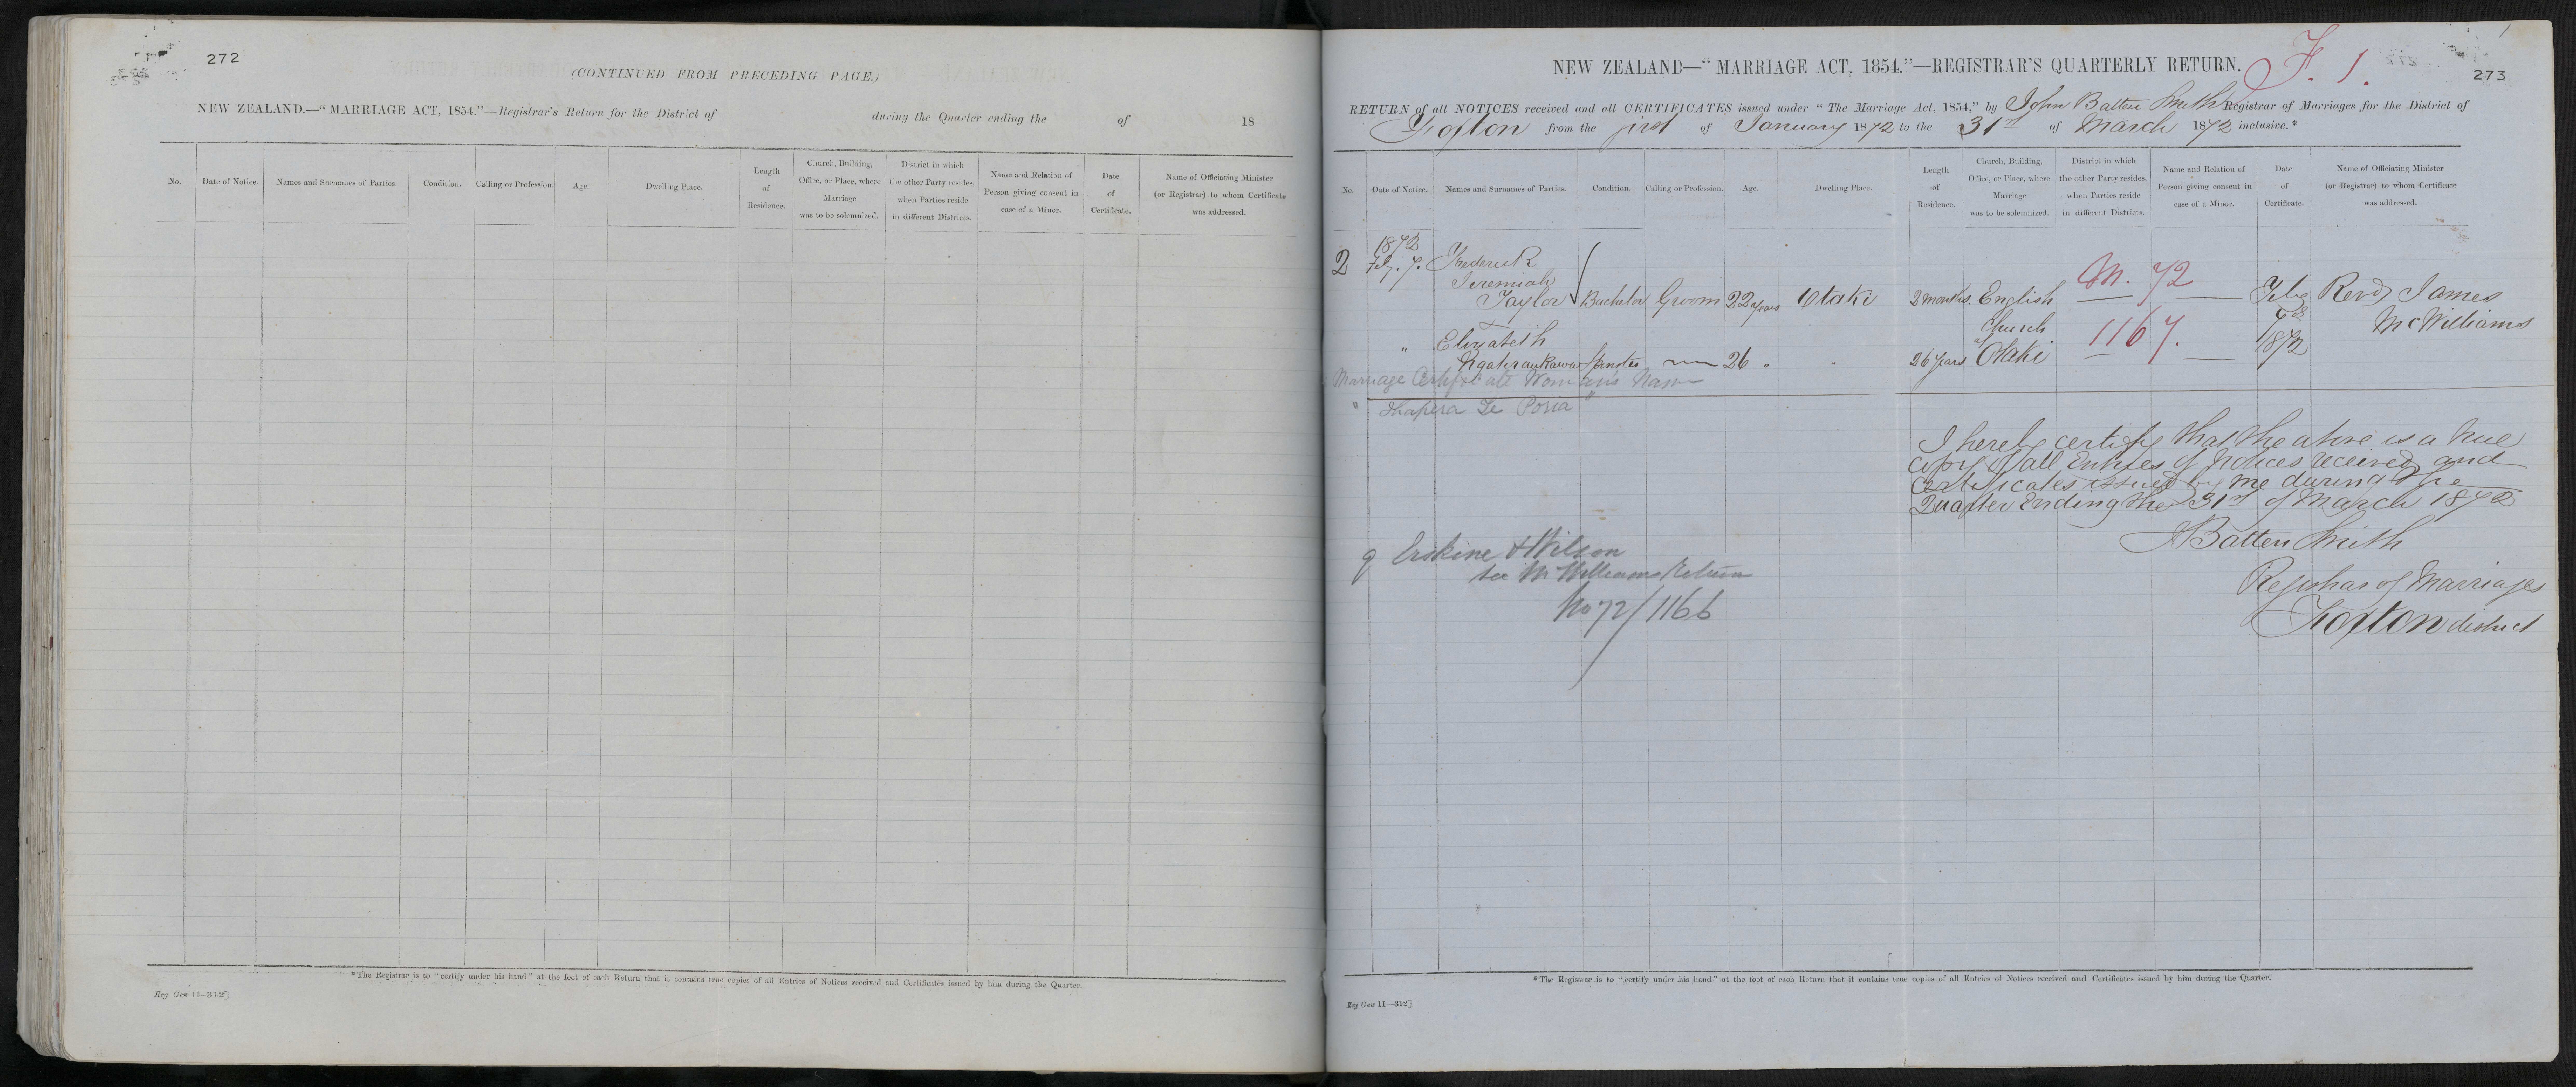 272
(CONTINUED FROM PRECEDING PAGE.)
NEW ZEALAND.—“MARRIAGE ACT, 1854.”—Registrar's Return for the District of during the Quarter ending the of 18
No. Date of Notice. Names and Surnames of Parties. Condition. Calling or Profession. Age. Dwelling Place. Length of Residence. Church, Building, Office, or Place, where Marriage was to be solemnized. District in which the other Party resides, when Parties reside in different Districts. Name and Relation of Person giving consent in case of a Minor. Date of Certificate. Name of Officiating Minister (or Registrar) to whom Certificate was addressed.
*The Registrar is to “certify under his hand” at the foot of each Return that it contains true copies of all Entries of Notices received and Certificates issued by him during the Quarter.
Reg Gen 11—312]
NEW ZEALAND—“MARRIAGE ACT, 1854.”—REGISTRAR'S QUARTERLY RETURN.
F. 1.
273
RETURN of all NOTICES received and all CERTIFICATES issued under “The Marriage Act, 1854,” by John Batten Smith Registrar of Marriages for the District of
Foxton from the first of January 1872 to the 31st of March 1872 inclusive.*
No. Date of Notice. Names and Surnames of Parties. Condition. Calling or Profession. Age. Dwelling Place. Length of Residence. Church, Building, Office, or Place, where Marriage was to be solemnized. District in which the other Party resides, when Parties reside in different Districts. Name and Relation of Person giving consent in case of a Minor. Date of Certificate. Name of Officiating Minister (or Registrar) to whom Certificate was addressed.
1872
2 Feby. 7. Frederick
Jeremiah
Taylor Bachelor Groom 22 years Otaki 2 months. English M. 72 Feby Revd James
Church 7th McWilliams
" Elizabeth at 1167. 1872
Ngahraukawa Spinster 26 " " 26 years Otaki
Marriage Certificate Woman's Name
" Te "
I hereby certify that the above is a true
copy of all Entries of Notices received and
Certificates issued by me during the
Quarter Ending the 31st of March 1872
JBatten Smith
Registrar of Marriages
Foxton district
Erskine & Wilson
see McWilliams Return
No 72/1166
*The Registrar is to “certify under his hand” at the foot of each Return that it contains true copies of all Entries of Notices received and Certificates issued by him during the Quarter.
Reg Gen 11—312]